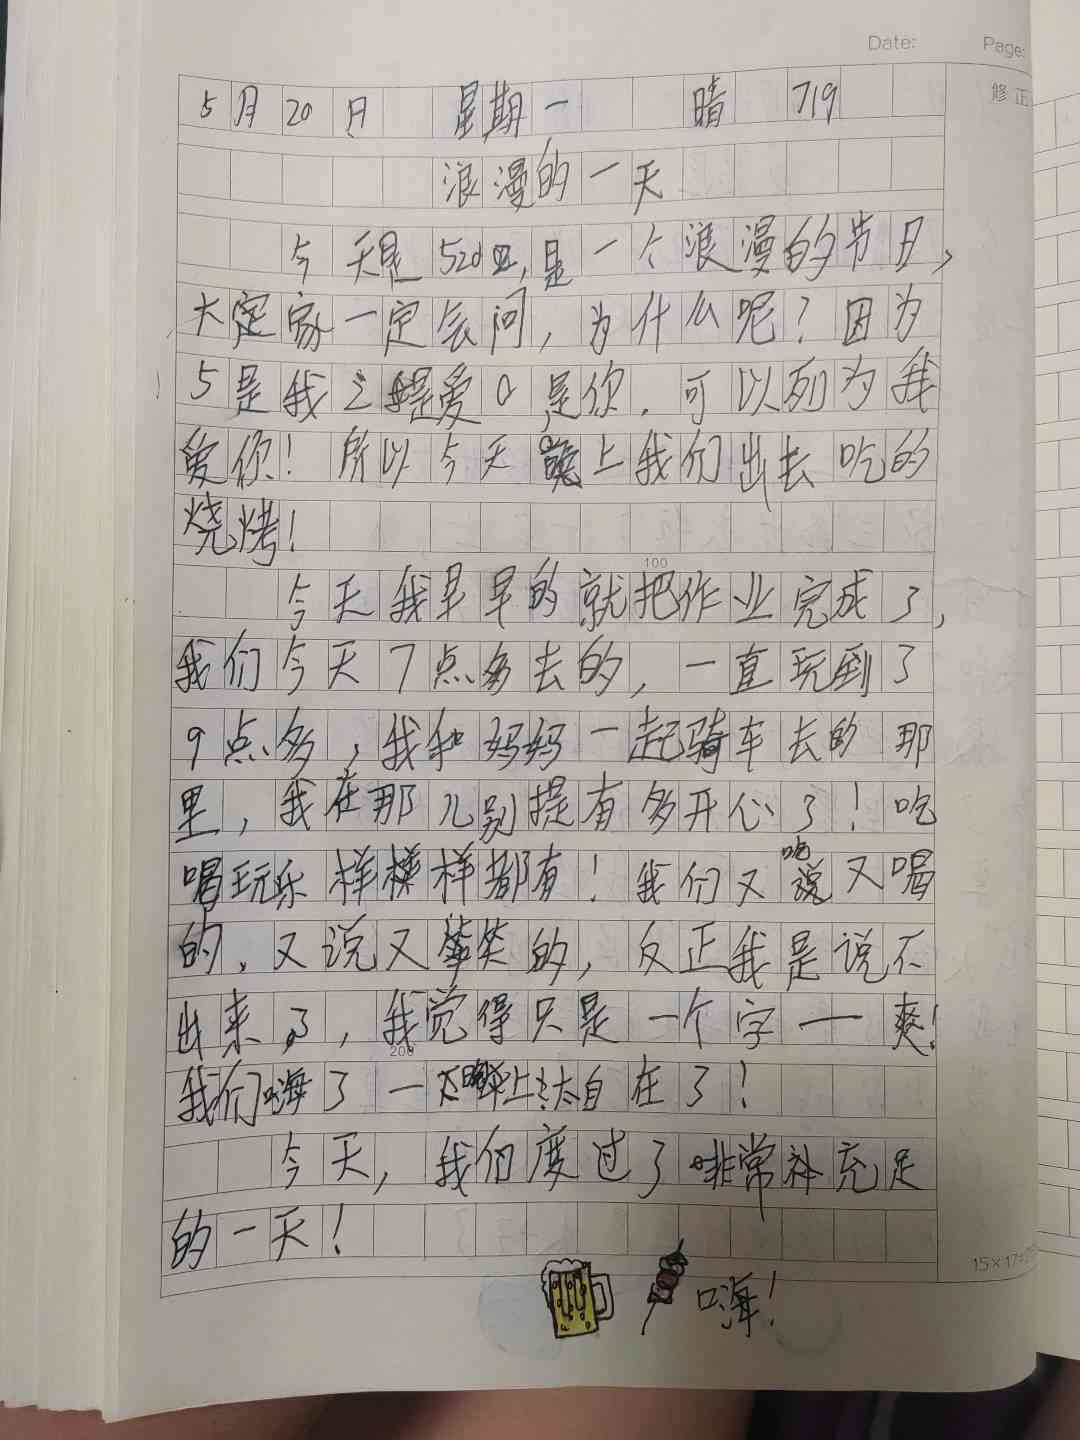 Date: Page:
修正
5月20日 星期一 晴 719
浪漫的一天
今天是520,是一个浪漫的节日,
大家一定会问,为什么呢?因为
5是我 2是爱 0是你.可以列为我
爱你!所以今天晚上我们出去吃的
烧烤!
100
今天我早早的就把作业完成了,
我们今天7点多去的,一直玩到了
9点多,我和妈妈一起骑车去的那
里,我在那儿别提有多开心了!吃
喝玩乐样样都有!我们又吃又喝
的,又说又笑的,反正我是说不
出来了,我觉得只是一个字一爽!
200
我们嗨了一晚上太自在了!
今天,我们度过了非常充足
的一天!
15×17=
嗨!